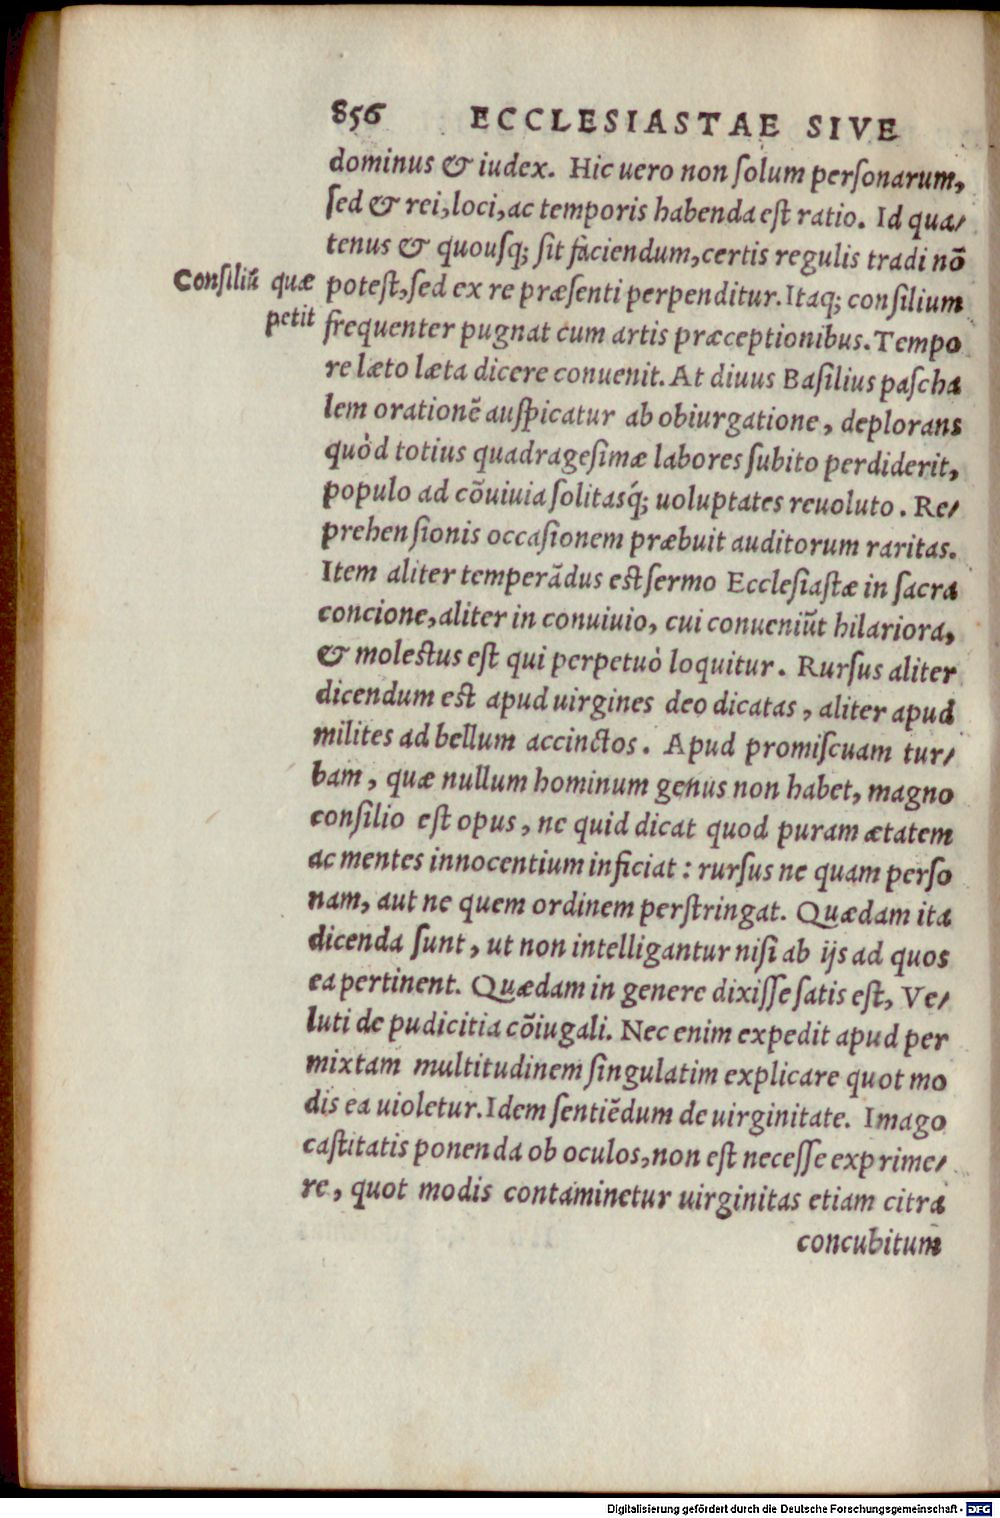 856 ECCLESIASTAE SIVE
dominus & iudex. Hic uero non ſolum perſonarum,
ſed & rei, loci, ac temporis habenda eſt ratio. Id qua/
tenus & quouſq; ſit faciendum, certis regulis tradi nō
Conſiliū quæ
petit
poteſt, ſed ex re præſenti perpenditur. Itaq; conſilium
frequenter pugnat cum artis præceptionibus. Tempo
re læto læta dicere conuenit. At diuus Baſilius paſcha
lem orationē auſpicatur ab obiurgatione, deplorans
quòd totius quadrageſimæ labores ſubito perdiderit,
populo ad cōuiuia ſolitasq́; uoluptates reuoluto. Re/
prehenſionis occaſionem præbuit auditorum raritas.
Item aliter temperādus eſt ſermo Eccleſiaſtæ in ſacra
concione, aliter in conuiuio, cui conueniūt hilariora,
& moleſtus eſt qui perpetuò loquitur. Rurſus aliter
dicendum eſt apud uirgines deo dicatas, aliter apud
milites ad bellum accinctos. Apud promiſcuam tur/
bam, quæ nullum hominum genus non habet, magno
conſilio eſt opus, ne quid dicat quod puram ætatem
ac mentes innocentium inficiat: rurſus ne quam perſo
nam, aut ne quem ordinem perſtringat. Quædam ita
dicenda ſunt, ut non intelligantur niſi ab ijs ad quos
ea pertinent. Quædam in genere dixiſſe ſatis eſt, Ve/
luti de pudicitia cōiugali. Nec enim expedit apud per
mixtam multitudinem ſingulatim explicare quot mo
dis ea uioletur. Idem ſentiēdum de uirginitate. Imago
caſtitatis ponenda ob oculos, non eſt neceſſe exprime/
re, quot modis contaminetur uirginitas etiam citra
concubitum
Digitalisierung gefördert durch die Deutsche Forschungsgemeinschaft - DFG